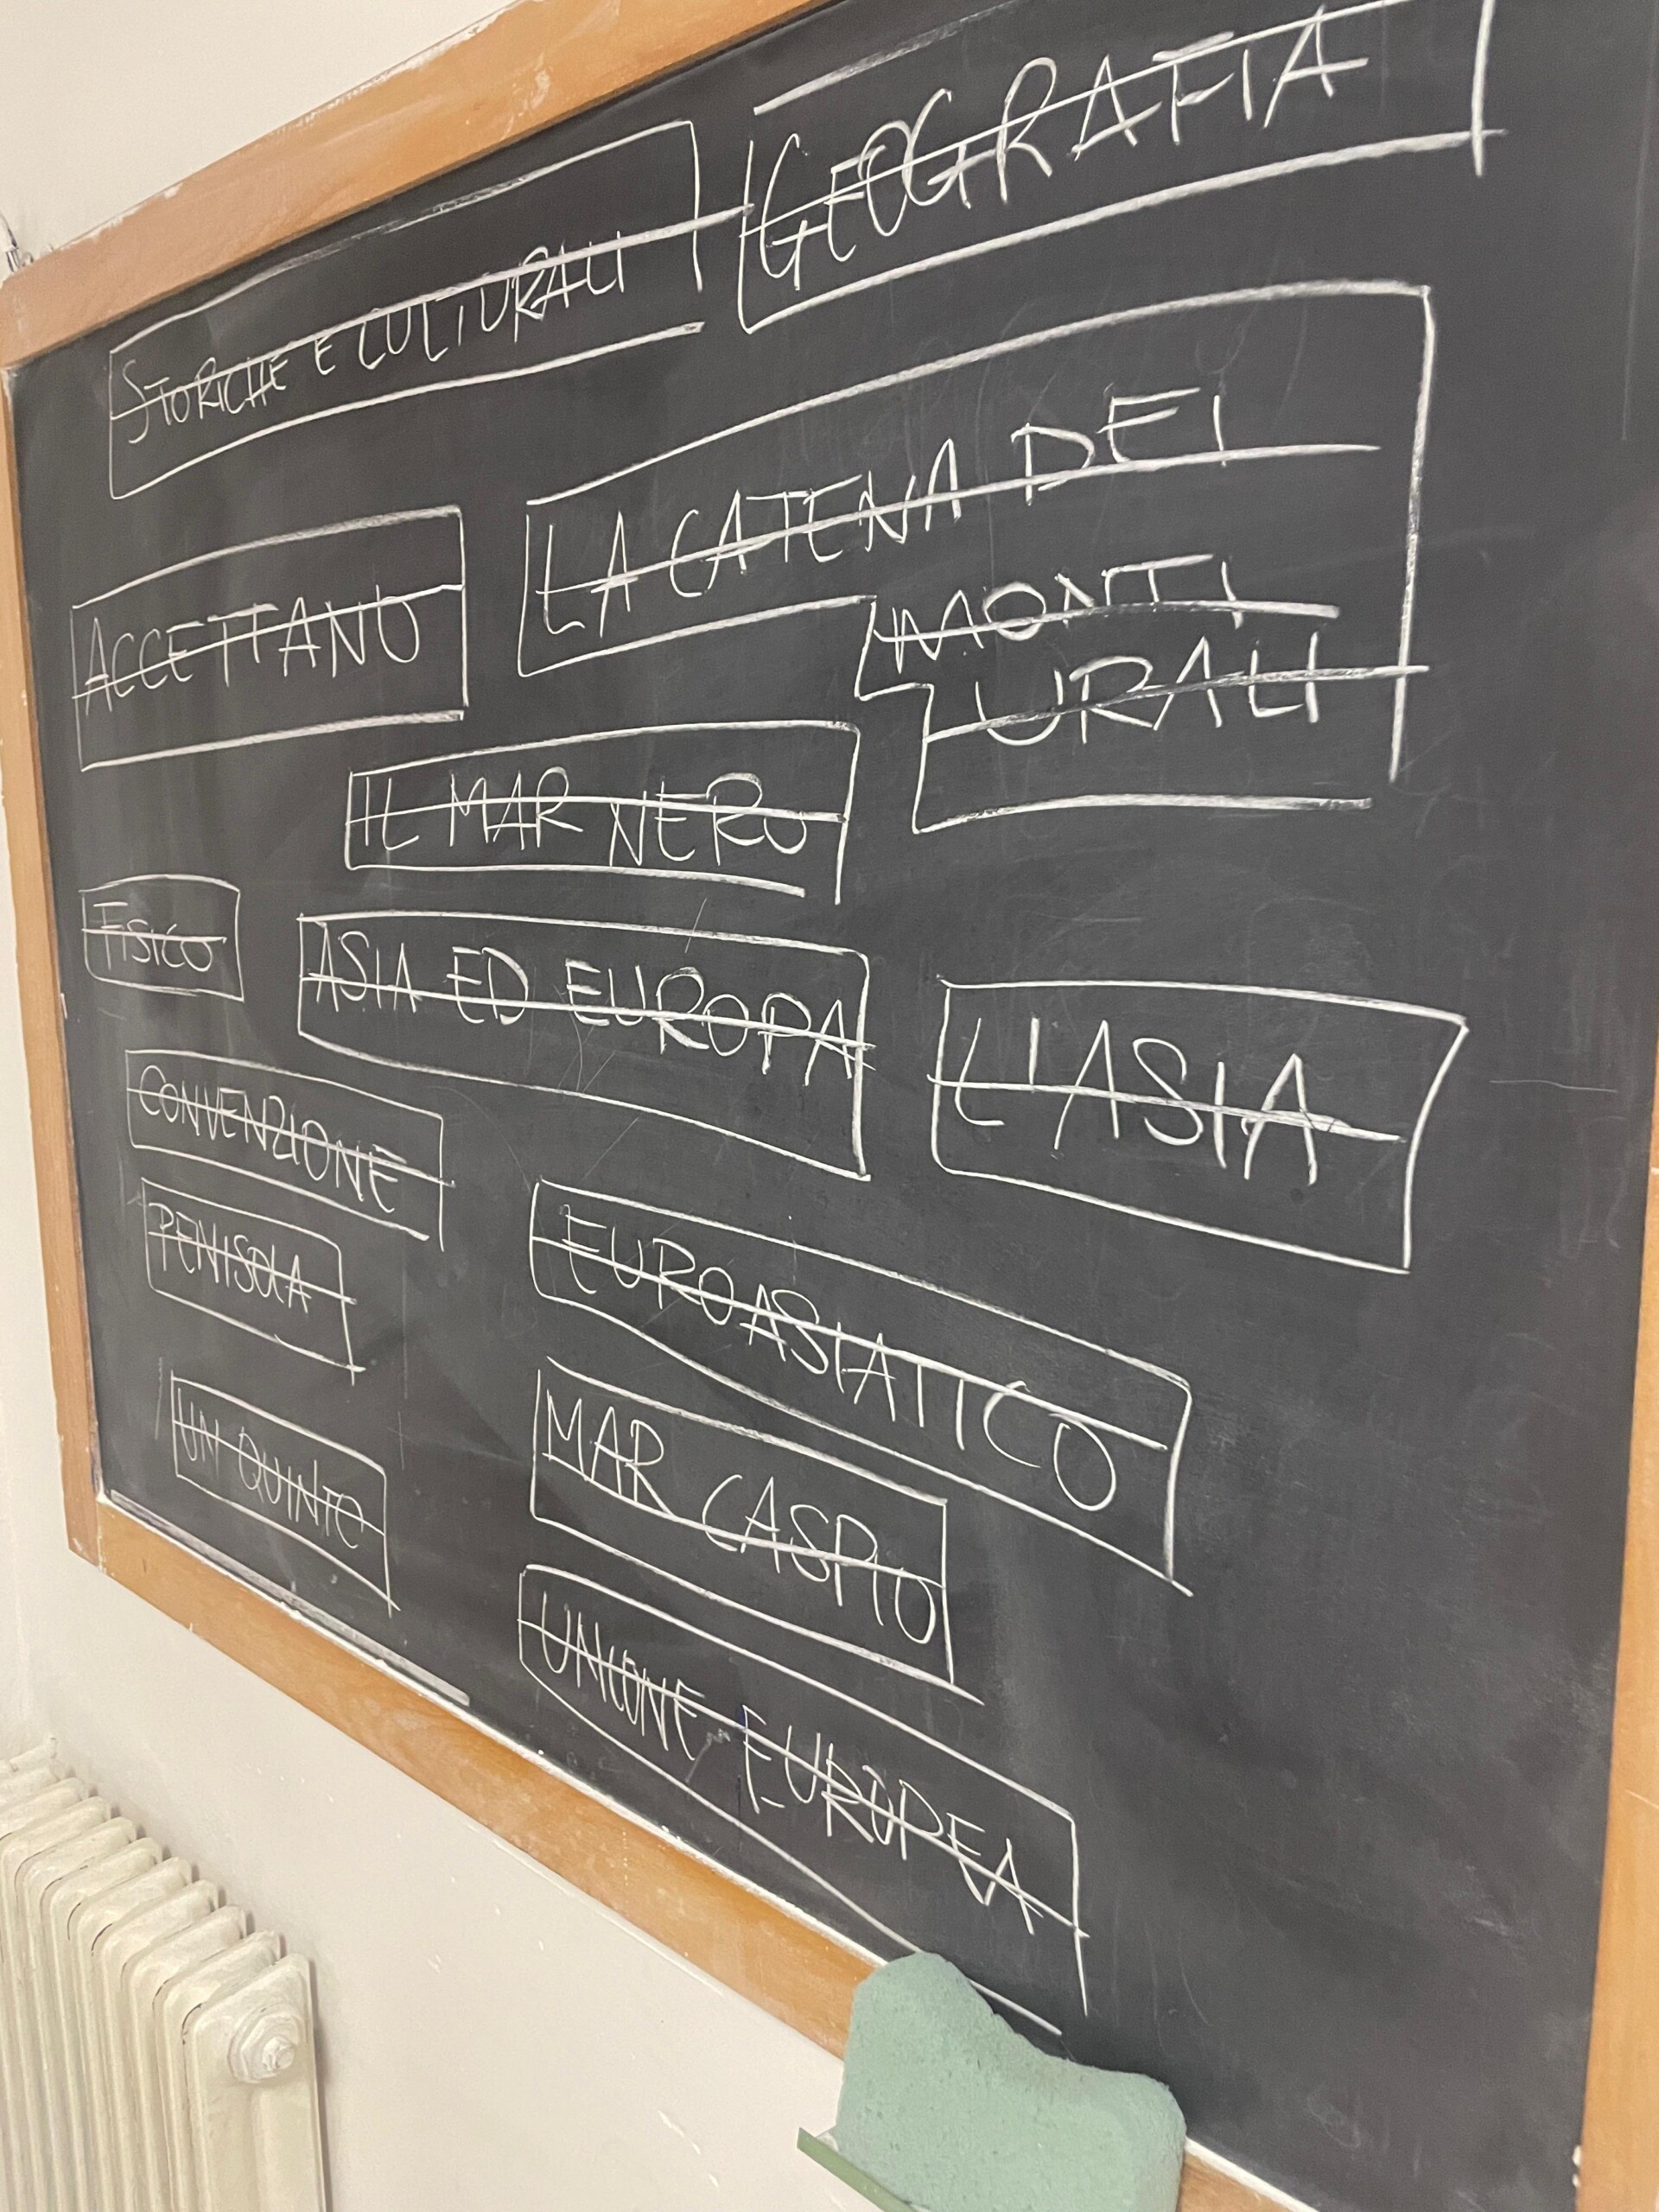 STORICHE E CULTURALI
GEOGRAFIA
ACCETTANO
LA CATENA DEI
MONTI
URALI
IL MAR NERO
FISICO
ASIA ED EUROPA
L'ASIA
CONVENZIONE
PENISOLA
EUROASIATICO
UN QUINTO
MAR CASPIO
UNIONE EUROPEA